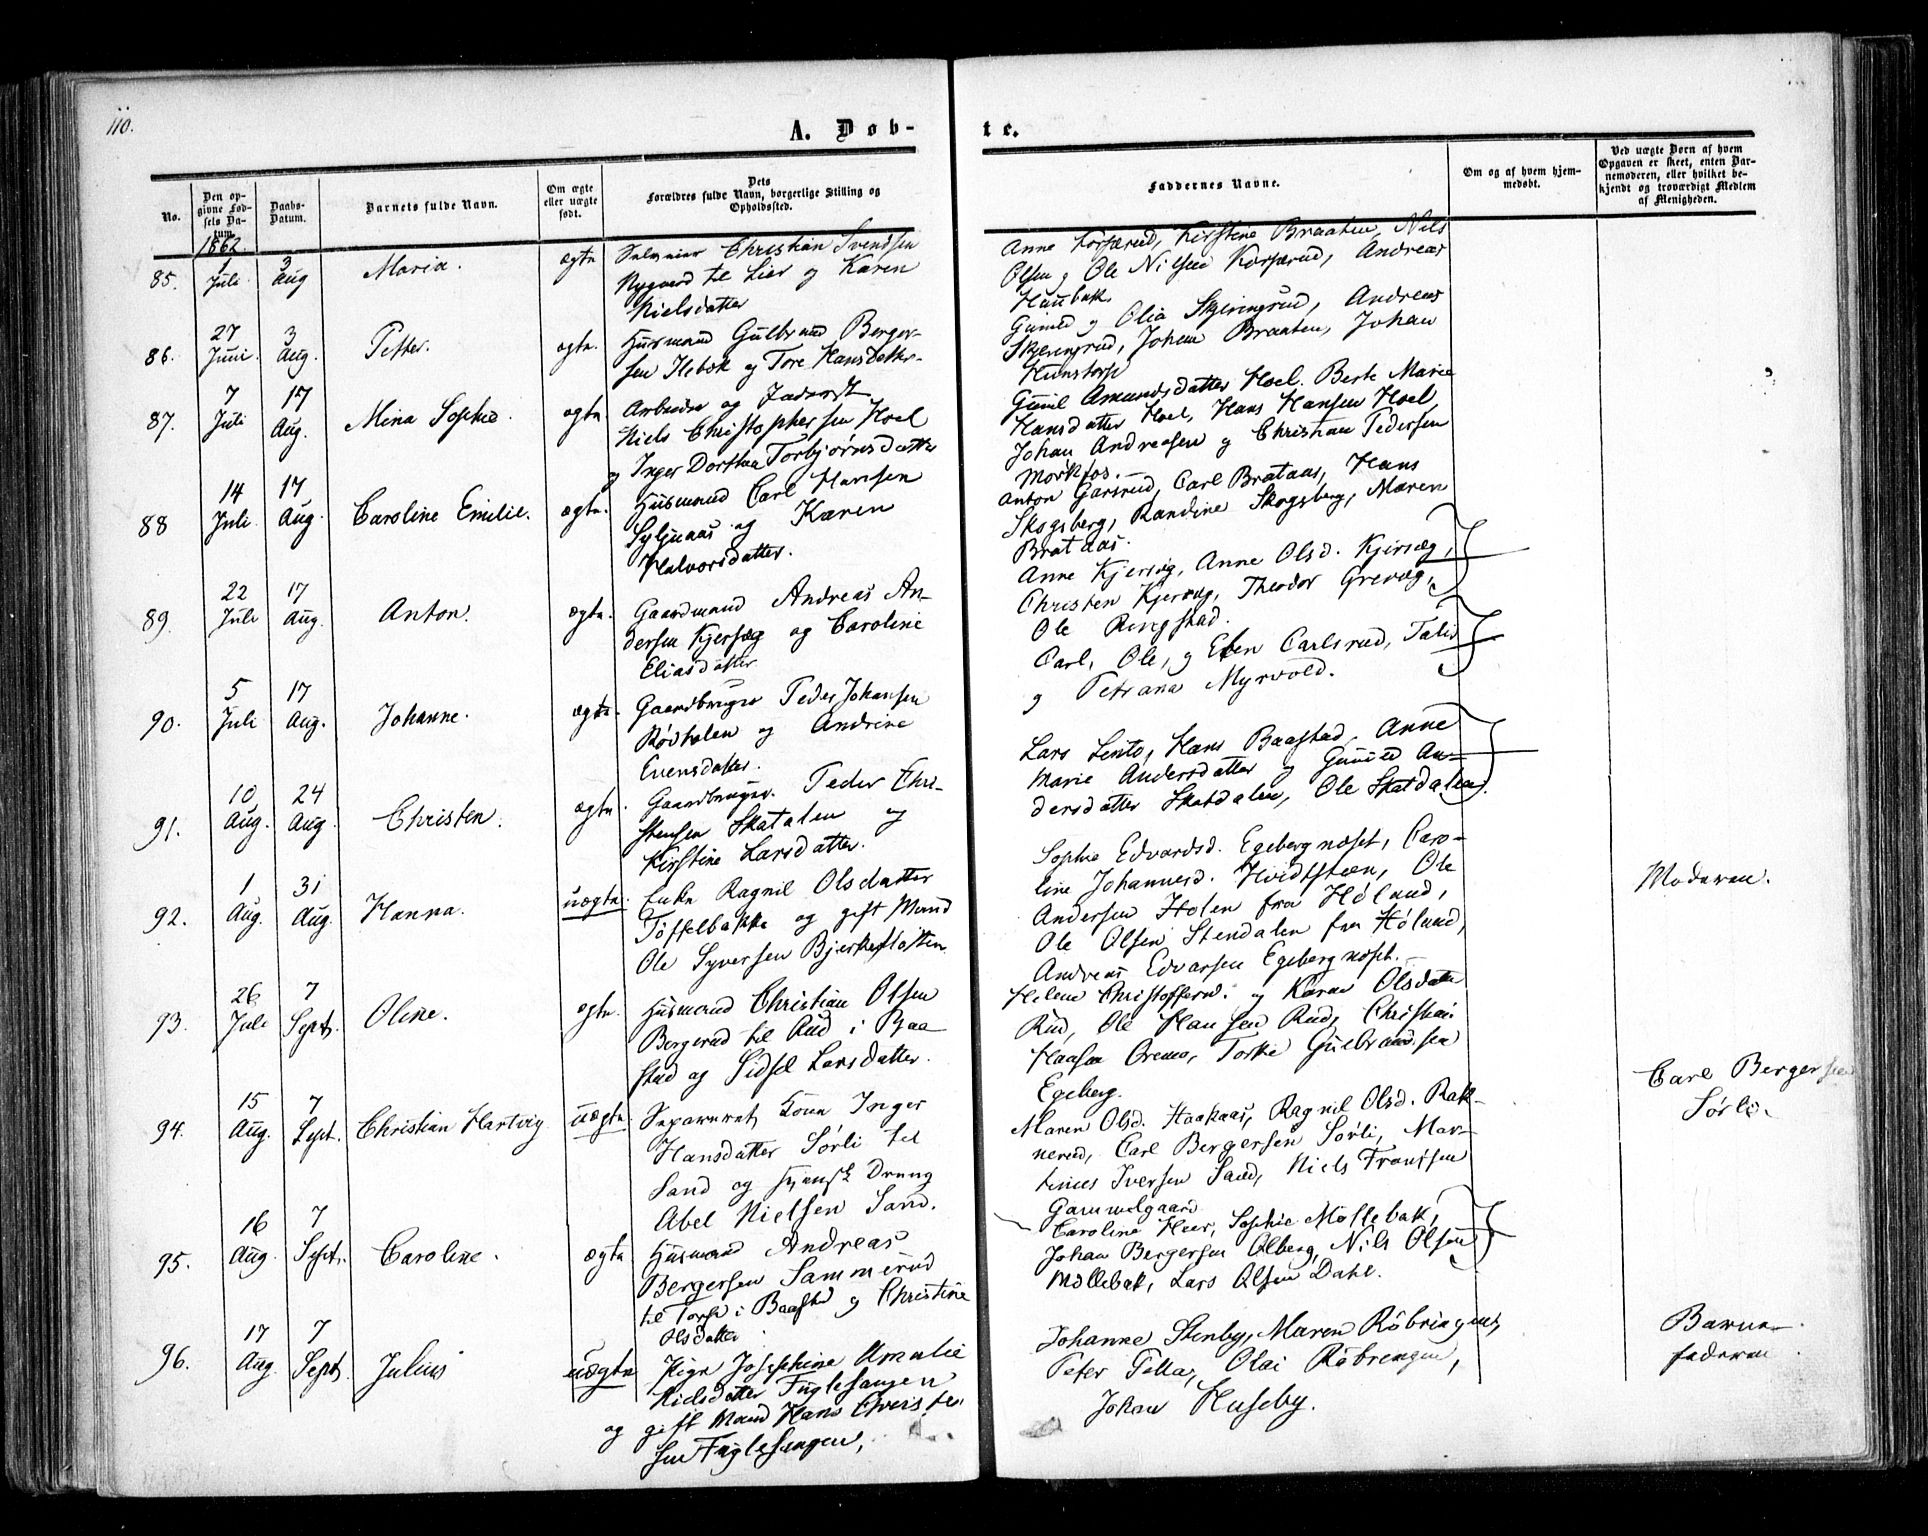 110.
A. Døb-
te.
No.
Den op-
givne Fød-
sels Da-
tum.
Daabs-
Datum.
Barnets fulde Navn.
Om ægte
eller uægte
født.
Dets
Forældres fulde Navn, borgerlige Stilling og
Opholdssted.
Faddernes Navne.
Om og af hvem hjem-
medøbt.
Ved uægte Børn af hvem
Opgaven er skeet, enten Bar-
nemoderen, eller hvilket be-
kjendt og troværdigt Medlem
af Menigheden.
1862.
85.
1
Juli
3
Aug
Maria.
ægte
Christian Svendsen
Nygaard til Lier og Karen
Nielsdatter
Anne Korsærud, Kirstine Braaten, Nils
Olsen og Ole Nilsen Korsærud, Andreas
Haubak
86.
27
Juni.
3
Aug.
Petter.
ægte.
Husmand Gulbrand Berger-
sen Ilebæk og Tore Hansdatter
Gunild og Olia Skjerengrud, Andreas
Skjerengrud, Johan Braaten, Johan
87.
7
Juli
17
Aug.
Mina Sophie.
ægte
Arbeider og Inderst
Niels Christophersen Hoel
og Inger Dorthea Torbjørnsdatter
Gunil Amundsdatter Hoel. Berte Marie
Hansdatter Hoel, Hans Hansen Hoel
Johan Andreasen og Christian Pedersen
Mørkfos.
88
14
Juli.
17
Aug.
Caroline Emilie.
ægte.
Husmand Carl Hansen
Syljuaas og Karen
Halvorsdatter.
Anton Garsrud, Carl Brataas, Hans
Skogsberg, Randine Skogsberg, Maren
Brataas.
89.
22
Juli
17
Aug.
Anton.
ægte.
Gaardmand Andreas An-
dersen Kjersæg og Caroline
Eliasdatter
Anne Kjersæg, Anne Olsd. Kjersæg,
Christen Kjersæg, Theodor Grevæg,
Ole Ringstad.
90.
5
Juli
17
Aug.
Johanne.
ægte.
Gaardbruger Peder Johansen
Rødholen og Andrine
Evensdatter.
Carl, Ole, og Even Carlsrud, Talis
og Petrana Myrvold.
91.
10
Aug.
24
Aug.
Christen.
ægte.
Gaardbruger Peder Chri-
stensen Skatalen og
Kirstine Larsdatter.
Lars Lento, Hans Baastad, Anne
Marie Andersdatter og Gunild An-
dersdatter Skatdalen, Ole Skatdalen.
92.
1
Aug.
31
Aug.
Hanna.
uægte.
Enke Ragnil Olsdatter
Töffelbakke og gift Mand
Ole Syversen Bjerkeslotten
Sophie Edvardsd. Egebergnæset, Caro-
line Johannesd. Hvidtsteen, Ole
Andersen Holen fra Høland,
Ole Olsen Stendalen fra Høland,
Andreas Edvarsen Egebergnæset.
Moderen.
93.
26
Juli
7
Septs.
Oline.
ægte.
Husmand Christian Olsen
Bergerud til Rud i Baa-
stad og Sidsel Larsdatter.
Helene Christoffersd. og Karen Olsdatter
Rud, Ole Hansen Rud, Christian
Haasen Oremo, Torke Gulbrandsen
Egeberg.
94.
15
Aug.
7
Sept.
Christian Hartvig
uægte.
Separeret Kone Inger
Hansdatter Sørli til
Sand og svensk Dreng
Abel Nielsen Sand.
Maren Olsd. Haakaas, Ragnil Olsd. Rak-
nerud, Carl Bergersen Sørli, Mar-
tinus Iversen Sand, Niels Frantsen
Gammelgaard
Carl Bergersen
Sørli.
95.
16
Aug.
7
Sept.
Caroline.
ægte
Husmand Andreas
Bergersen Sammerud
til Torper i Baastad og Christine
Olsdatter
Caroline Heer, Sophie Møllebak,
Johan Bergersen Olberg, Nils Olsen
Møllebak, Lars Olsen Dahl.
96.
17
Aug.
7
Sept.
Julius
uægte
Pige Josephine Amalie
Nielsdatter Fuglesangen
og gift Mand Hans Christen
sen Fuglesangen,
Johanne Stenby, Maren Röbringen,
Peter Tella, Olai Röbrengen,
Johan Huseby.
Barne-
faderen.